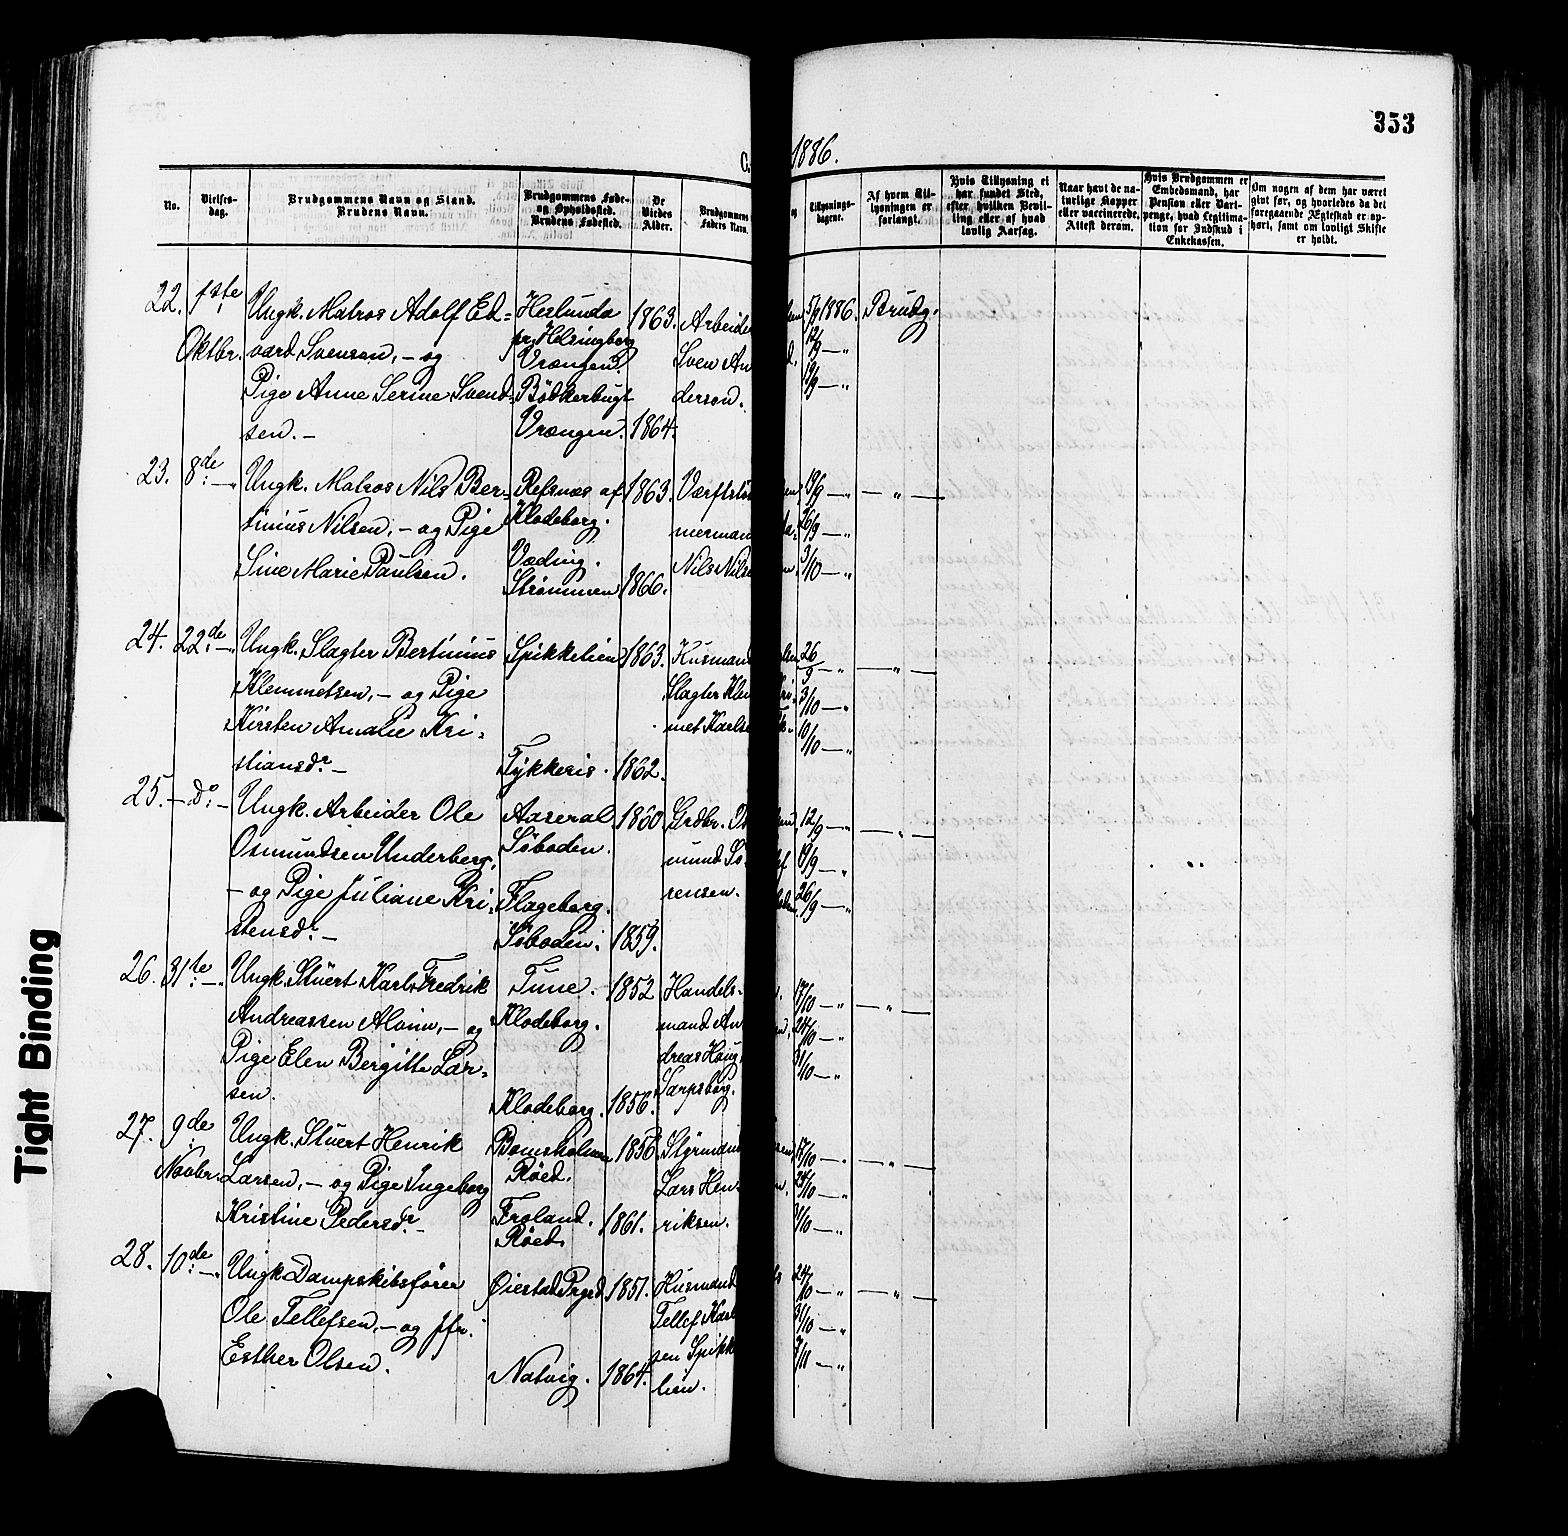 353
1886.
No.
Vielses-
dag.
Brudgommens Navn og Stand.
Brudens Navn.
Brudgommens Føde-
og Opholdssted.
Brudens Fødested.
De
Viedes
Alder.
Brudgommens
Faders Navn.
og
Tillysnings-
dagene.
Af hvem Til-
lysningen er
forlangt.
Hvis Tillysning ei
har fundet Sted,
efter hvilken Bevil-
ling eller af hvad
lovlig Aarsag.
Naar havt de na-
turlige Kopper
eller vaccinerede.
Attest derom.
Hvis Brudgommen er
Embedsmand, har
Pension eller Vart-
penge, hvad Legitima-
tion for Indskud i
Enkekassen.
Om nogen af dem har været
givt før, og hvorledes da det
foregaaende Ægteskab er op-
hørt, samt om lovligt Skifte
er holdt.
22. 1ste Oktbr.
Ungk. Matros Adolf Ed-
vard Svensen, – og
Pige Anne Serine Svend-
sen. –
Heslunda
pr. Helsingborg
Vrængen.
Bödkerbugt
Vrængen.
1863.
1864.
Arbeider
Sven An
derson.
5/9 1886.
12/9 – "
19/9 – "
Brudg.
23. 8de – "
Ungk. Matros Nils Ber-
tinius Nilsen, – og Pige
Sine Marie Paulsen.
Refsnæs af
Klodeborg.
Væding.
Strømmen
1863.
1866.
Værftstøm
mermand
Nils Nilse
19/9 – "
26/9 – "
3/10 – "
– " –
24. 22de – "
Ungk. Slagter Bertinius
Klemmetsen, – og Pige
Kirsten Amalie Kri-
stiansdr. –
Spikkelien
Tykkeris.
1863.
1862.
Husmand
Slagter Klem
met Karlse
26/9 – "
3/10 – "
10/10 – "
– " –
25. – Do. –
Ungk. Arbeider Ole
Osmundsen Underberg,
– og Pige Juliane Kri-
stensdr. –
Aaseral
Söboden.
Flageborg.
Söboden.
1860.
1859.
Grdbr. Os
mund Sö
rensen.
12/9 – "
19/9 – "
26/9 – "
– " –
26. 31te – "
Ungk. Stuert Karl Fredrik
Andreassen Alvim, – og
Pige Elen Bergitte Lar-
sen.
Tune.
Klodeborg.
Klodeborg.
1852
1856.
Handels-
mand An
dreas Haug
Sarpsborg.
17/10 – "
24/10 – "
31/10 – "
– " –
27. 9de Novbr.
Ungk. Stuert Henrik
Larsen, – og Pige Ingeborg
Kristine Pedersdr. –
Bomsholmen
Röed.
Froland.
Röed.
1856
1861.
Styrmand
Lars Hen-
riksen.
17/10 – "
24/10 – "
31/10 – "
– " –
28. 10de – "
Ungk. Dampskibsfører
Ole Tellefsen, – og Jfr.
Esther Olsen.
Øiestad Prgjd.
Natvig.
1851.
1864.
Husmand
Tellef Karl
sen Spikke
lien.
24/10 – "
31/10 – "
7/11 – "
– " –
Tight Binding